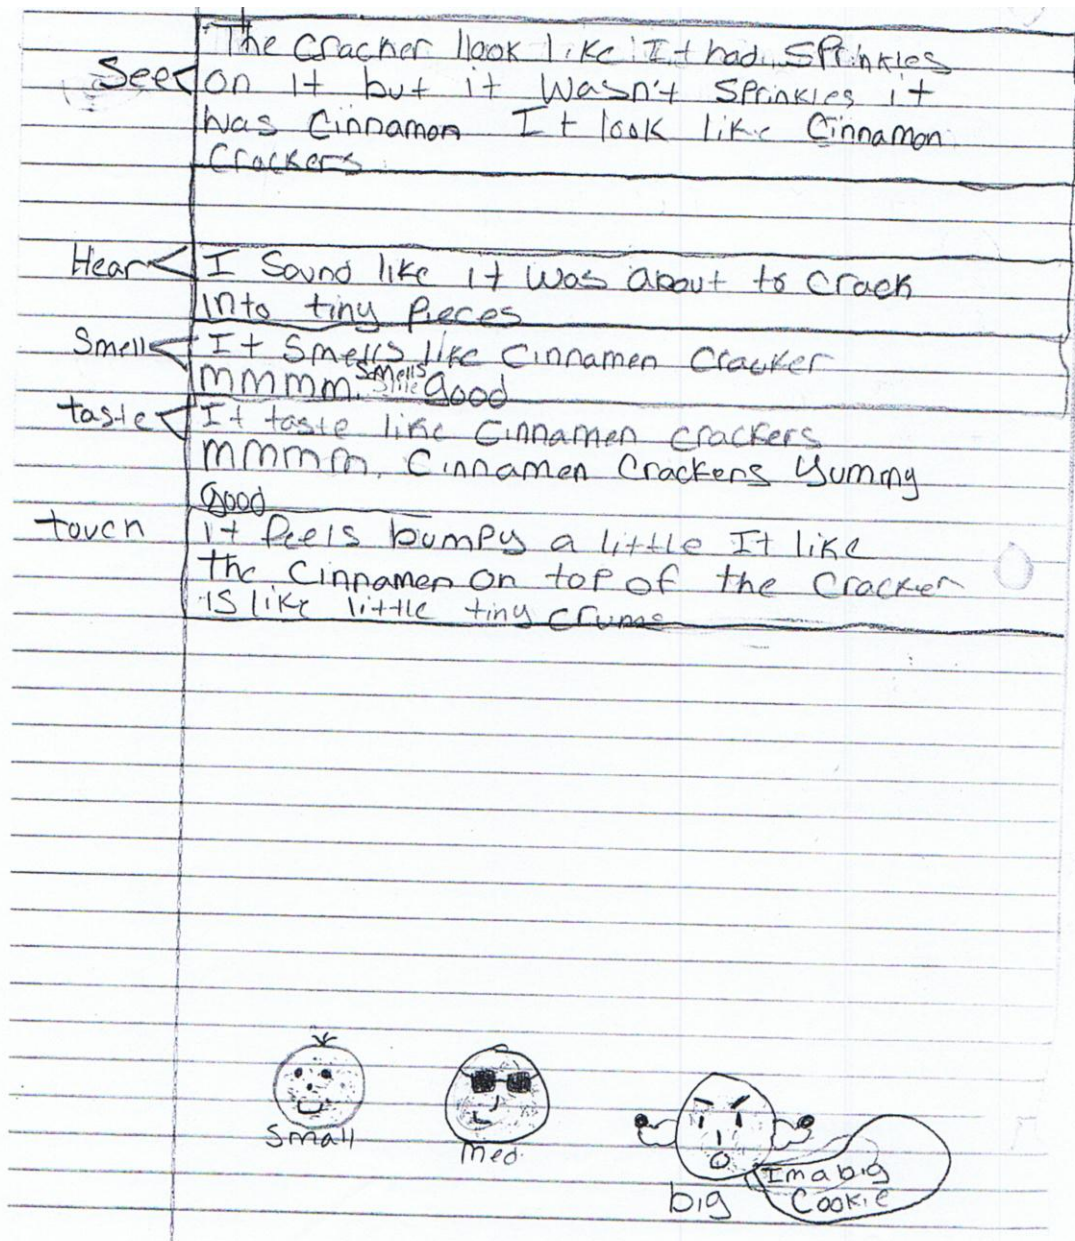 The Cracker look like It had Sprinkles
See on It but it Wasn't Sprinkles it
Was Cinnamon It look like Cinnamon
Crackers
Hear I Sound like it Was about to Crack
Into tiny Pieces
Smell It Smells like Cinnamen Cracker
mmmm. Smells Good
taste It taste like Cinnamen crackers
mmmm. Cinnamen Crackers Yummy
Good
touch It feels bumpy a little It like
the Cinnamen on top of the Cracker
IS like little tiny crums
Small
Med.
big
Im a big
Cookie